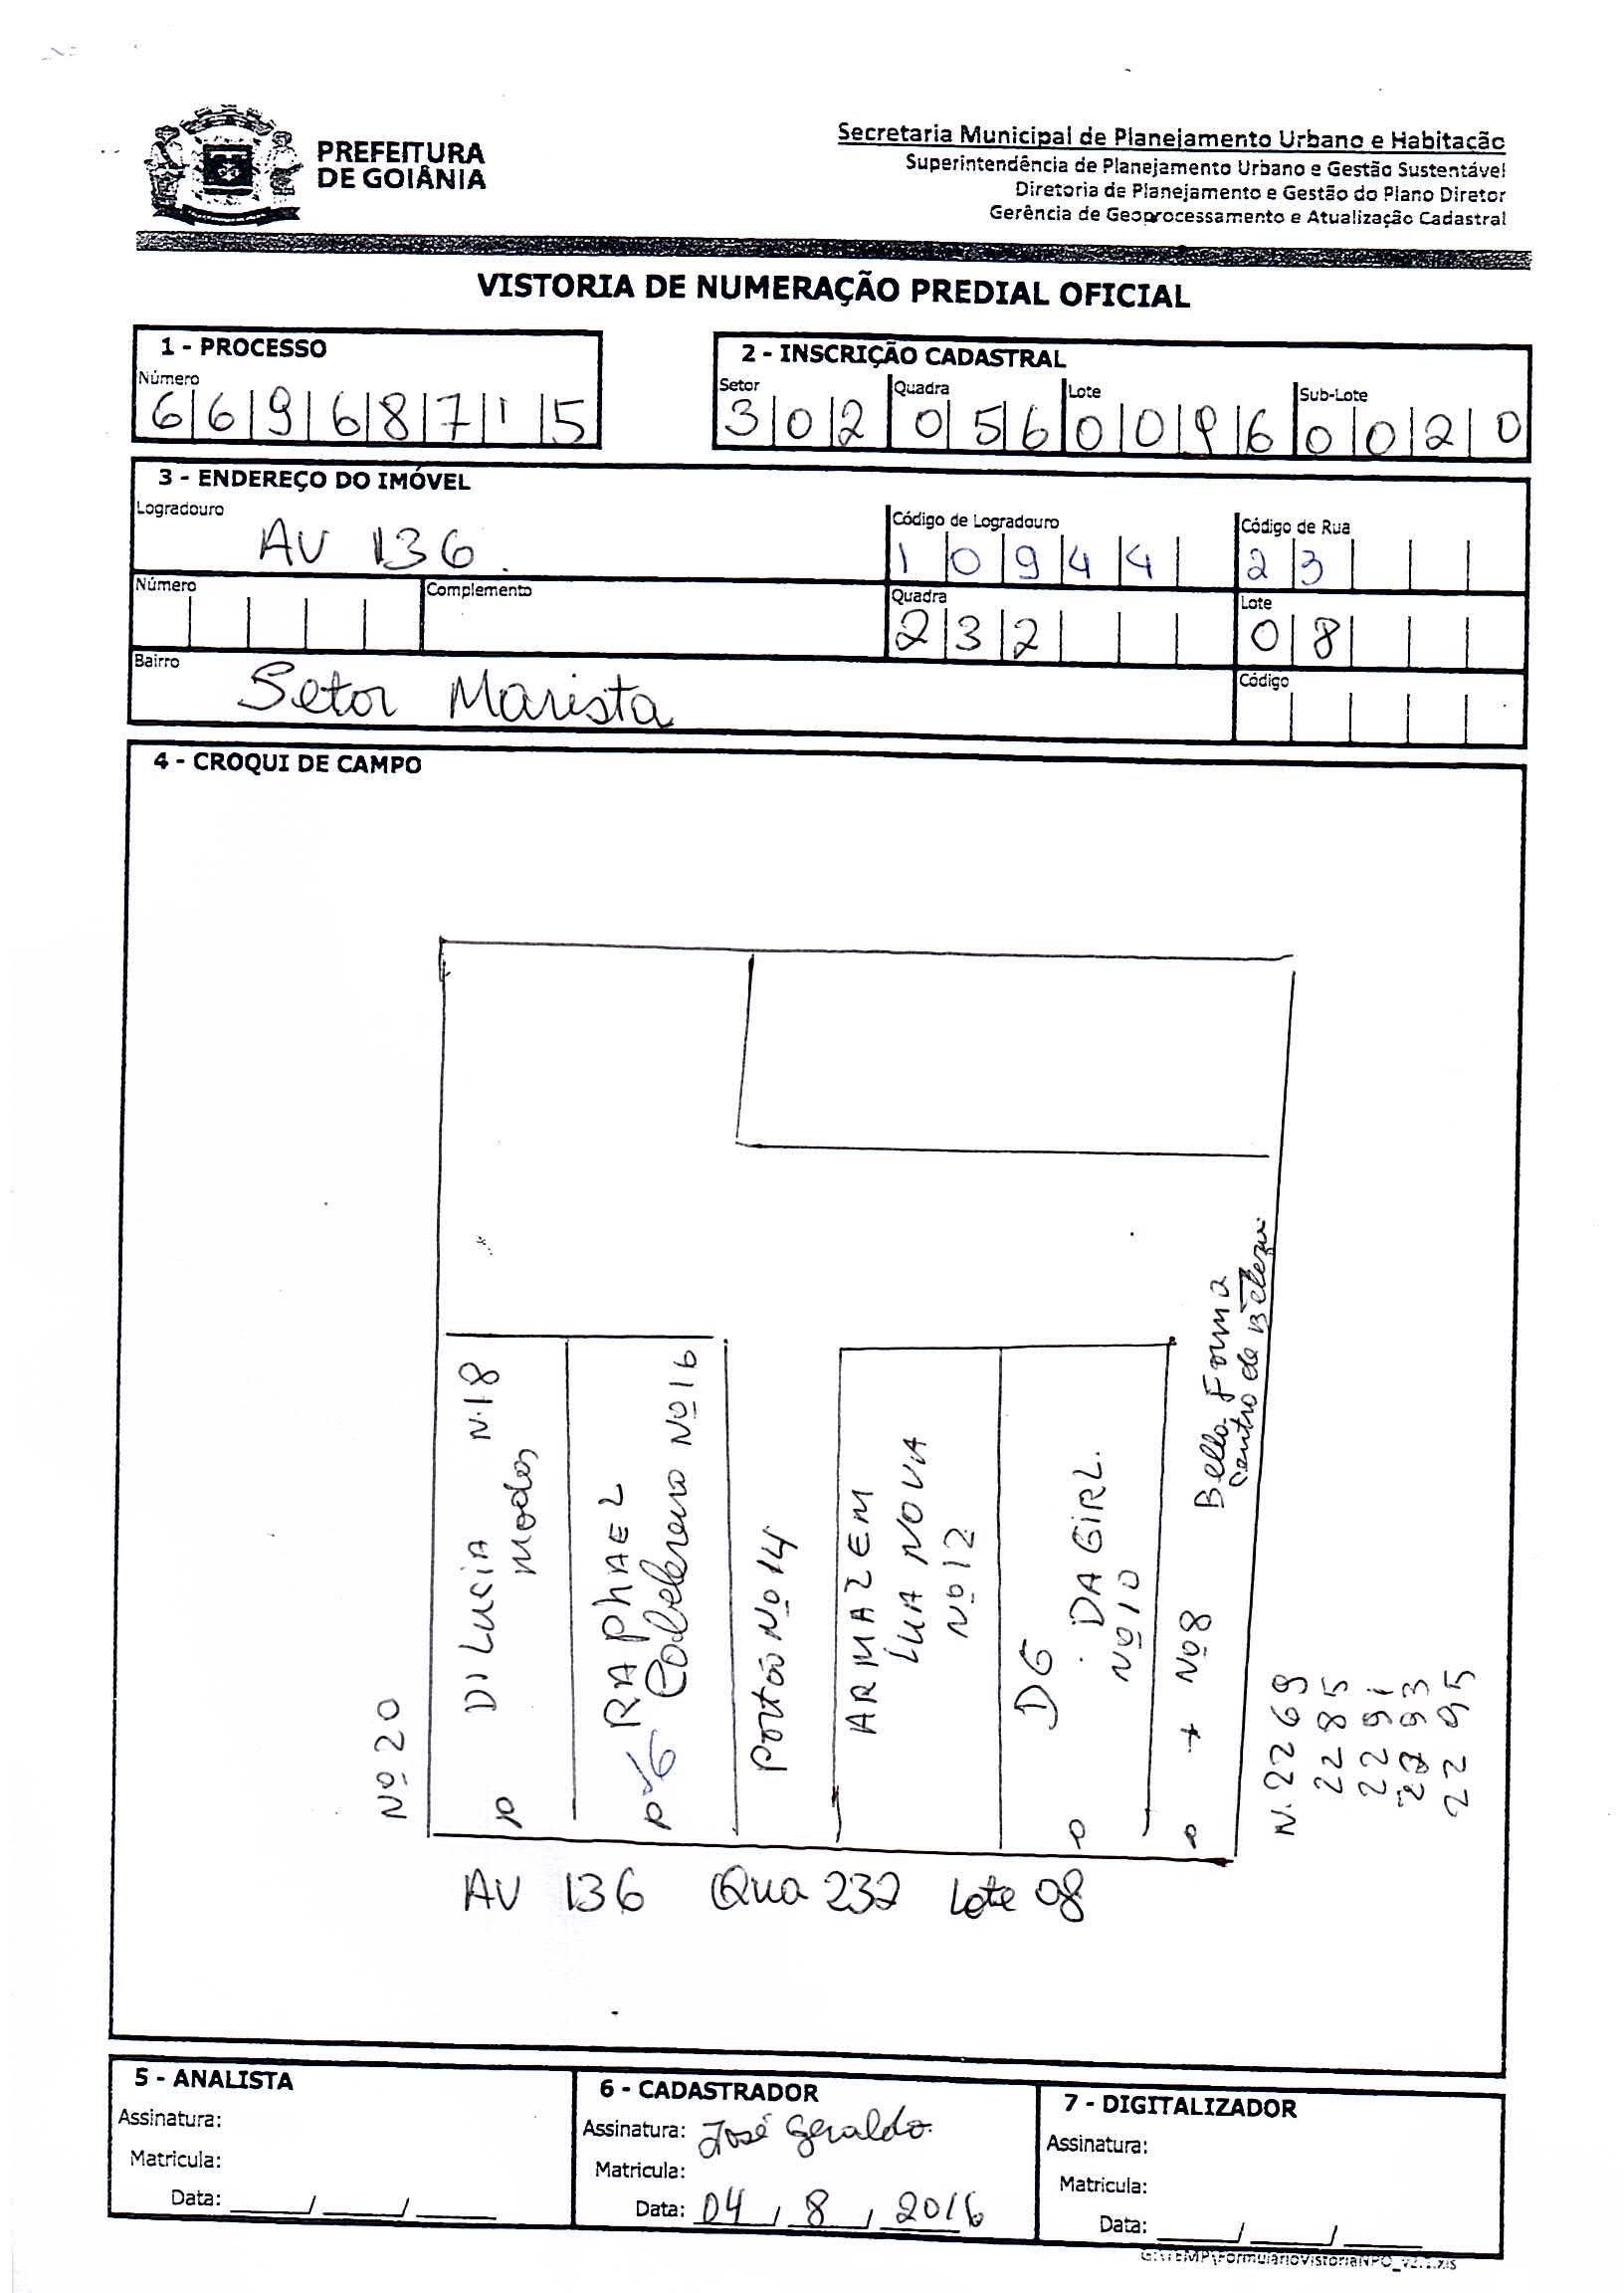 PREFEITURA
DE GOIÂNIA
Secretaria Municipal de Planejamento Urbano e Habitação
Superintendência de Planejamento Urbano e Gestão Sustentável
Diretoria de Planejamento e Gestão do Plano Diretor
Gerência de Geoprocessamento e Atualização Cadastral
VISTORIA DE NUMERAÇÃO PREDIAL OFICIAL
1 - PROCESSO
Número
6 6 9 6 8 7 1 5
2 - INSCRIÇÃO CADASTRAL
Setor Quadra Lote Sub-Lote
3 0 2 0 5 6 0 0 9 6 0 0 2 0
3 - ENDEREÇO DO IMÓVEL
Logradouro
AV 136.
Código de Logradouro
1 0 9 4 4
Código de Rua
2 3
Número
Complemento
Quadra
2 3 2
Lote
0 8
Bairro
Setor Marista
Código
4 - CROQUI DE CAMPO
Nº 20
DI LUCIA N.18
Modas
RAPHAEL
Nº 16
Portão Nº 14
ARMAZEM
LUA NOVA
Nº 12
DG
DA GIRL.
Nº 10
Nº 8
Bella Forma
Centro de Beleza
N. 2269
2285
2291
2293
2295
AV 136 Qua 232 Lote 08
5 - ANALISTA
Assinatura:
Matricula:
Data: ____/____/____
6 - CADASTRADOR
Assinatura: José Geraldo
Matricula:
Data: 04/8/2016
7 - DIGITALIZADOR
Assinatura:
Matricula:
Data: ____/____/____
G:\TEMP\FormularioVistoriaNPO_v2.1.xls